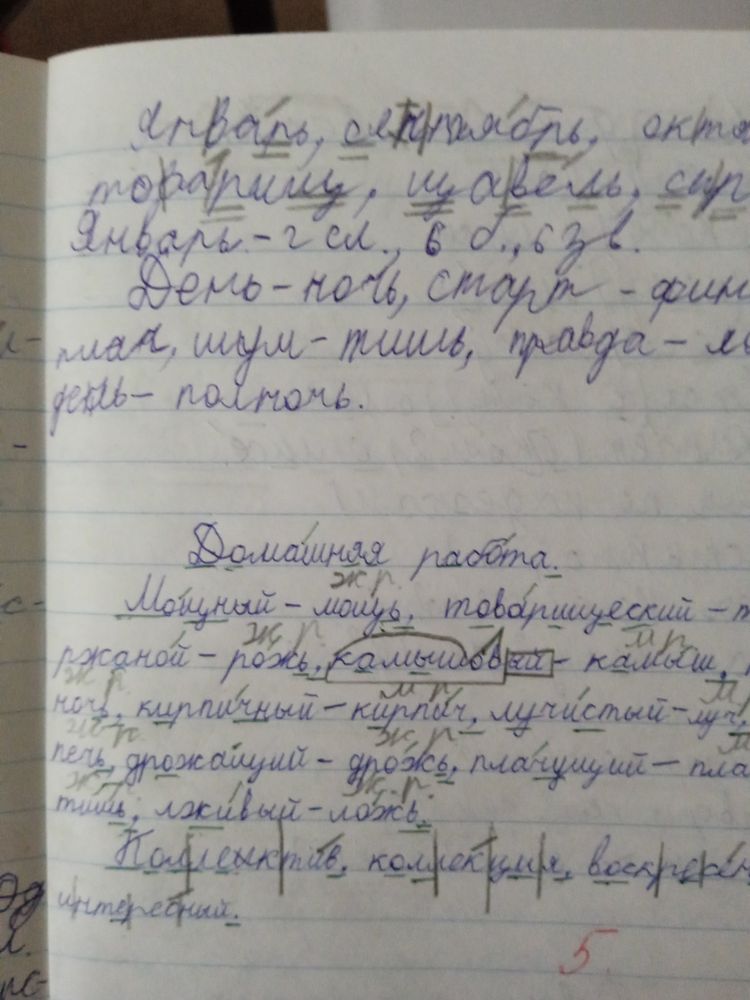 Январь, сентябрь, октя
товарищ, щавель, сыр
Январь - 2 сл., 6 б., 6 зв.
День - ночь, старт - фин
плач, шум - тишь, правда - ло
день - полночь.
Домашняя работа.
ж.р.
Мощный - мощь, товарищеский - т
ж.р. м.р.
ржаной - рожь, камышовый - камыш,
ж.р. м.р. м
ночь, кирпичный - кирпич, лучистый - луч,
ж.р. ж.р. м
печь, дрожащий - дрожь, плачущий - пла
ж.р. ж.р.
тишь, лживый - ложь.
Коллектив, коллекция, воскресен
интересный.
5.